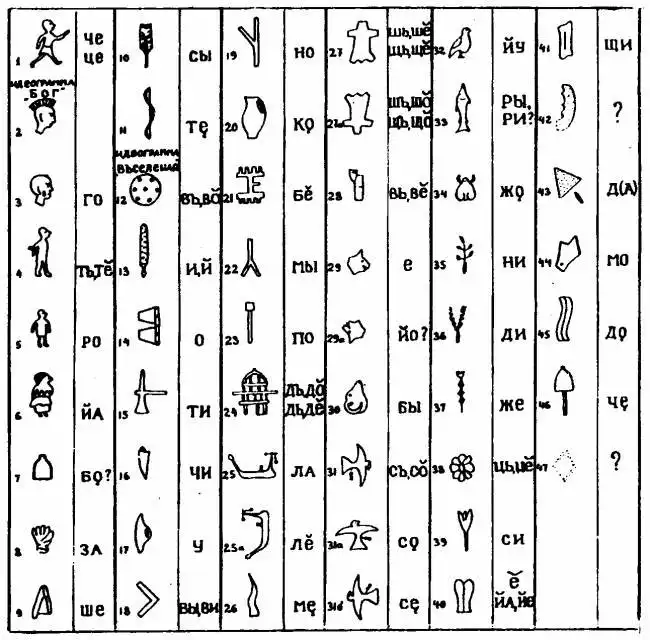 1 ЧЕ
ЦЕ
ИДЕОГРАММА
"БОГ"
2
3 ГО
4 ТЬ,ТĔ
5 РО
6 ЙА
7 БǪ?
8 ЗА
9 ШЕ
10 СЫ
11 ТĘ
ИДЕОГРАММА
ВЪСЕЛЕНАЙ
12 ВЪ,ВŎ
13 И,Й
14 О
15 ТИ
16 ЧИ
17 У
18 ВЫ,ВИ
19 НО
20 КǪ
21 БĔ
22 МЫ
23 ПО
24 ДЪ,ДŎ
ДЬ,ДĔ
25 ЛА
25а ЛĔ
26 МĘ
27 ШЬ,ШĔ
ЩЬ,ЩĔ
27а ШЪ,ШŎ
ЩЪ,ЩŎ
28 ВЬ,ВĔ
29 Е
29а ЙО?
30 БЫ
31 СЪ,СŎ
31а СǪ
31б СĘ
32 ЙУ
33 РЫ,
РИ?
34 ЖǪ
35 НИ
36 ДИ
37 ЖЕ
38 ЦЬ,ЦĔ
39 СИ
40 Ĕ
ЙА,ЙЕ
41 ЩИ
42 ?
43 Д(А)
44 МО
45 ДǪ
46 ЧĘ
47 ?